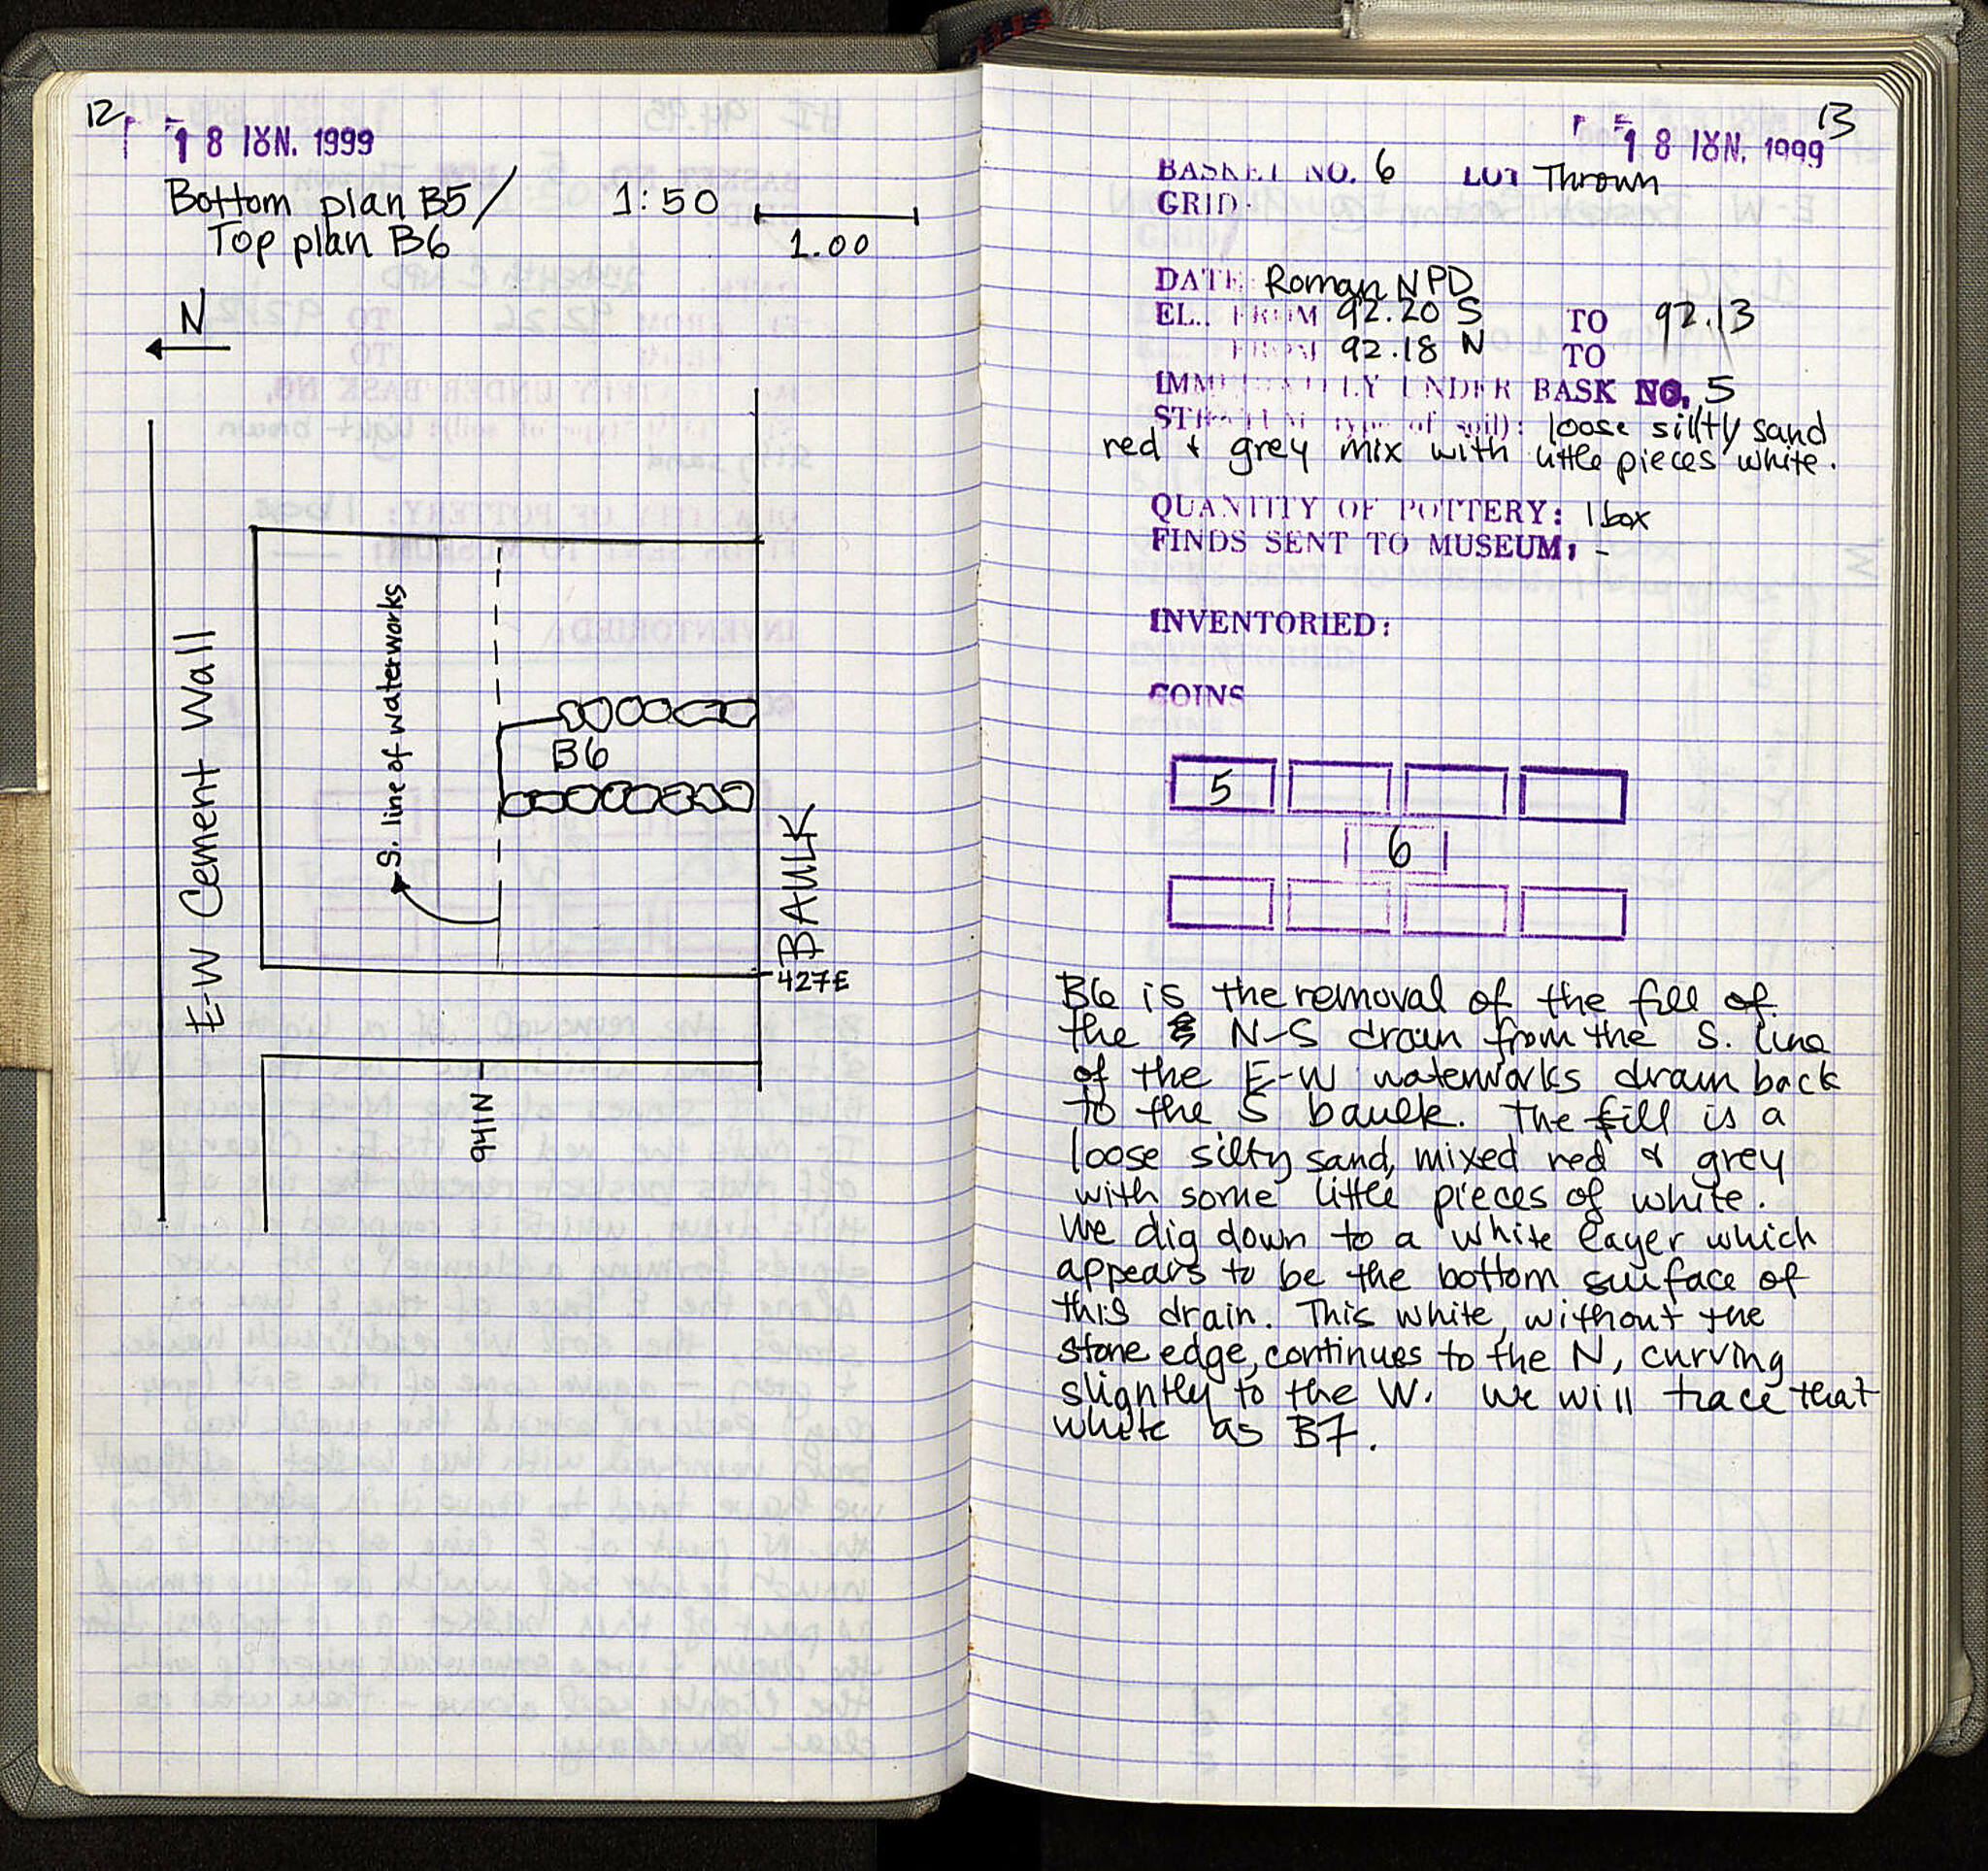 12
18 ΙΟΥΝ. 1999
Bottom plan B5/
Top plan B6
1:50
1.00
N
E-W Cement Wall
S. line of waterworks
B6
BAULK
427E
941N
13
18 ΙΟΥΝ. 1999
BASKET NO. 6 LOT Thrown
GRID:
DATE: Roman NPD
EL.: FROM 92.20 S TO 92.13
FROM 92.18 N TO
IMMEDIATELY UNDER BASK NO. 5
STRATUM (type of soil): loose sillty sand
red & grey mix with little pieces white.
QUANTITY OF POTTERY: 1 box
FINDS SENT TO MUSEUM: -
INVENTORIED:
COINS
5
6
B6 is the removal of the fill of
the N-S drain from the S. line
of the E-W waterworks drain back
to the S baulk. The fill is a
loose silty sand, mixed red & grey
with some little pieces of white.
We dig down to a white layer which
appears to be the bottom surface of
this drain. This white, without the
stone edge, continues to the N, curving
slightly to the W. We will trace that
white as B7.